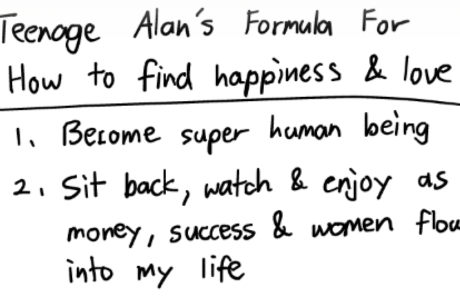 Teenage Alan's Formula For
How to find happiness & love
1. Become super human being
2. Sit back, watch & enjoy as
money, success & women flow
into my life